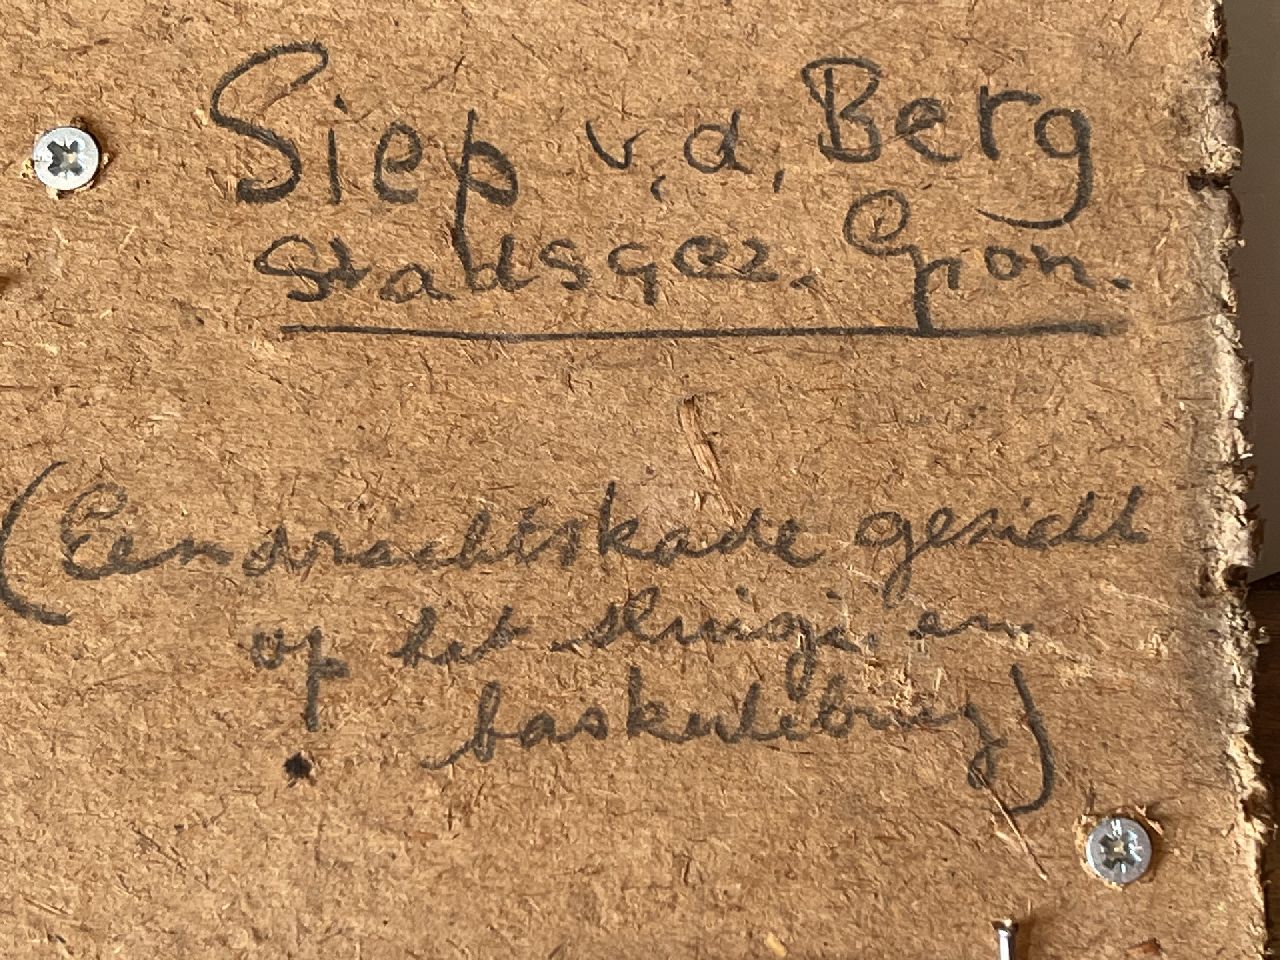 Siep v.d. Berg
stadsgez. Gron.
(Eendrachtskade gezicht
op het en
baskulebrug)